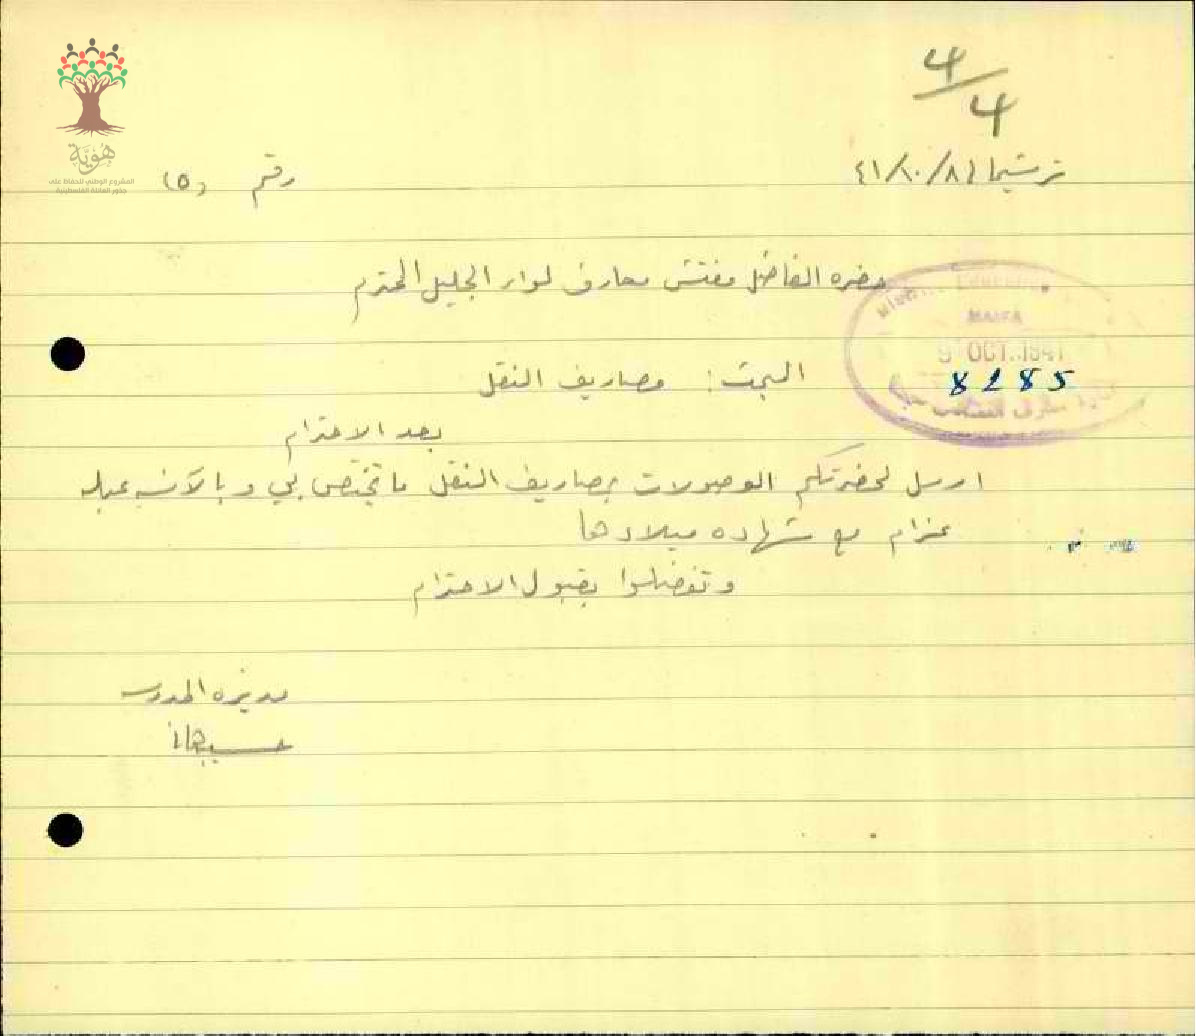 4/4
هوية
المشروع الوطني للحفاظ على
جذور العائلة الفلسطينية
ترشيحا ٤١/١٠/٨
رقم (٥)
حضره الفاضل مفتش معارف لواء الجليل المحترم
HAIFA
9 OCT. 1941
8285
البحث: مصاريف النقل
بعد الاحترام
ارسل لحضرتكم الوصولات بمصاريف النقل ما تختص بي وبالآنسه عبله
عزام مع شهاده ميلادها
وتفضلوا بقبول الاحترام
مديره المدرسه